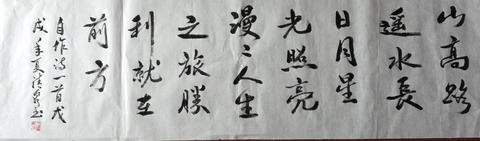 山高路
遥水長
日月星
光照亮
漫々人生
之旅勝
利就在
前方
自作诗一首戊
戌年夏